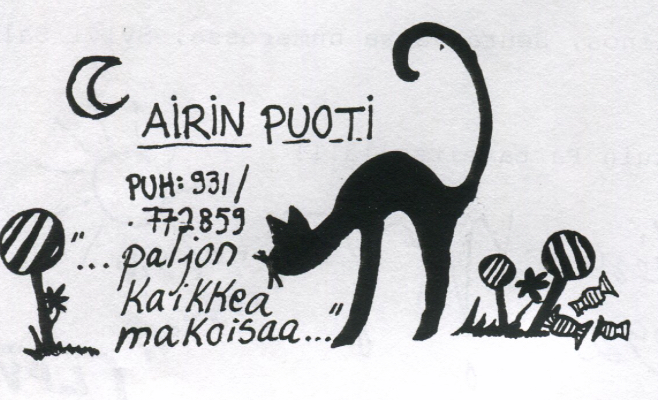 AIRIN PUOTI
PUH: 931/
.772859
"...paljon
kaikkea
makoisaa..."